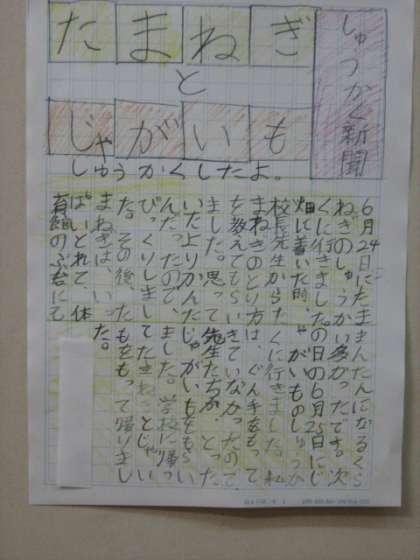 しゅうかく新聞
たまねぎ
と
じゃがいも
しゅうかくしたよ。
6月24日にたま
ねぎのしゅうか
くに行きました。
畑に着いた時、
校長先生からた
まねぎのとり方
を教えてもらい
ました。思って
いたよりかんた
んだったので、
びっくりしまし
た。その後、た
まねぎは、いっ
ぱいとれて、体
育館のぶ台にて
まんたんになるくら
い多かったです。次
の日の6月25日にじ
ゃがいものしゅうか
くに行きました。私
は、ぐん手をもって
きていなかったので
先生たちが、とった
じゃがいもをもらい
ました。学校に帰っ
てたまねぎとじゃい
もをもって帰りまし
た。